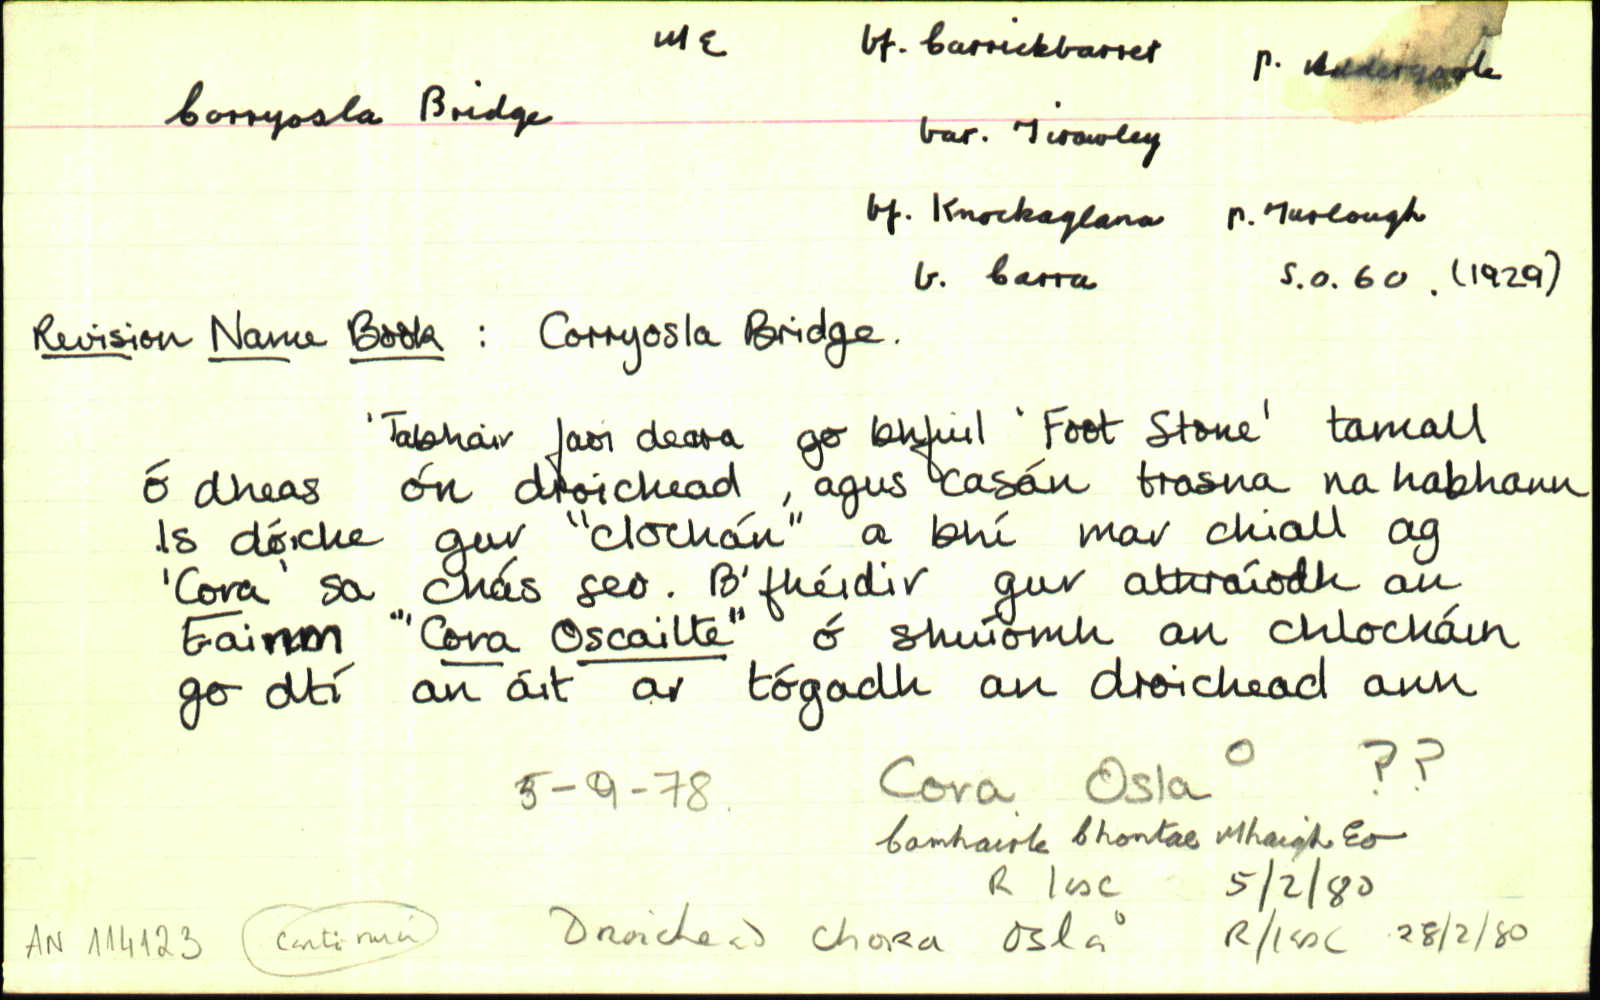 ME bf. Carrickbarret p. Addergoole
Corryosla Bridge
bar. Tirawley
bf. Knockaglana p. Turlough
b. Carra S.O. 60. (1929)
Revision Name Book : Corryosla Bridge.
'Tabhair faoi deara go bhfuil 'Foot Stone' tamall
ó dheas ón droichead, agus casán trasna na habhann
Is dóiche gur "clochán" a bhí mar chiall ag
'Cora' sa chás seo. B'fhéidir gur athraíodh an
t-ainm "Cora Oscailte" ó shuíomh an chlocháin
go dtí an áit ar tógadh an droichead ann
5-9-78. Cora Osla° ??
Comhairle Chontae Mhaigh Eo
5/2/80
AN 114123 Droichead Chora Osla° 28/2/80